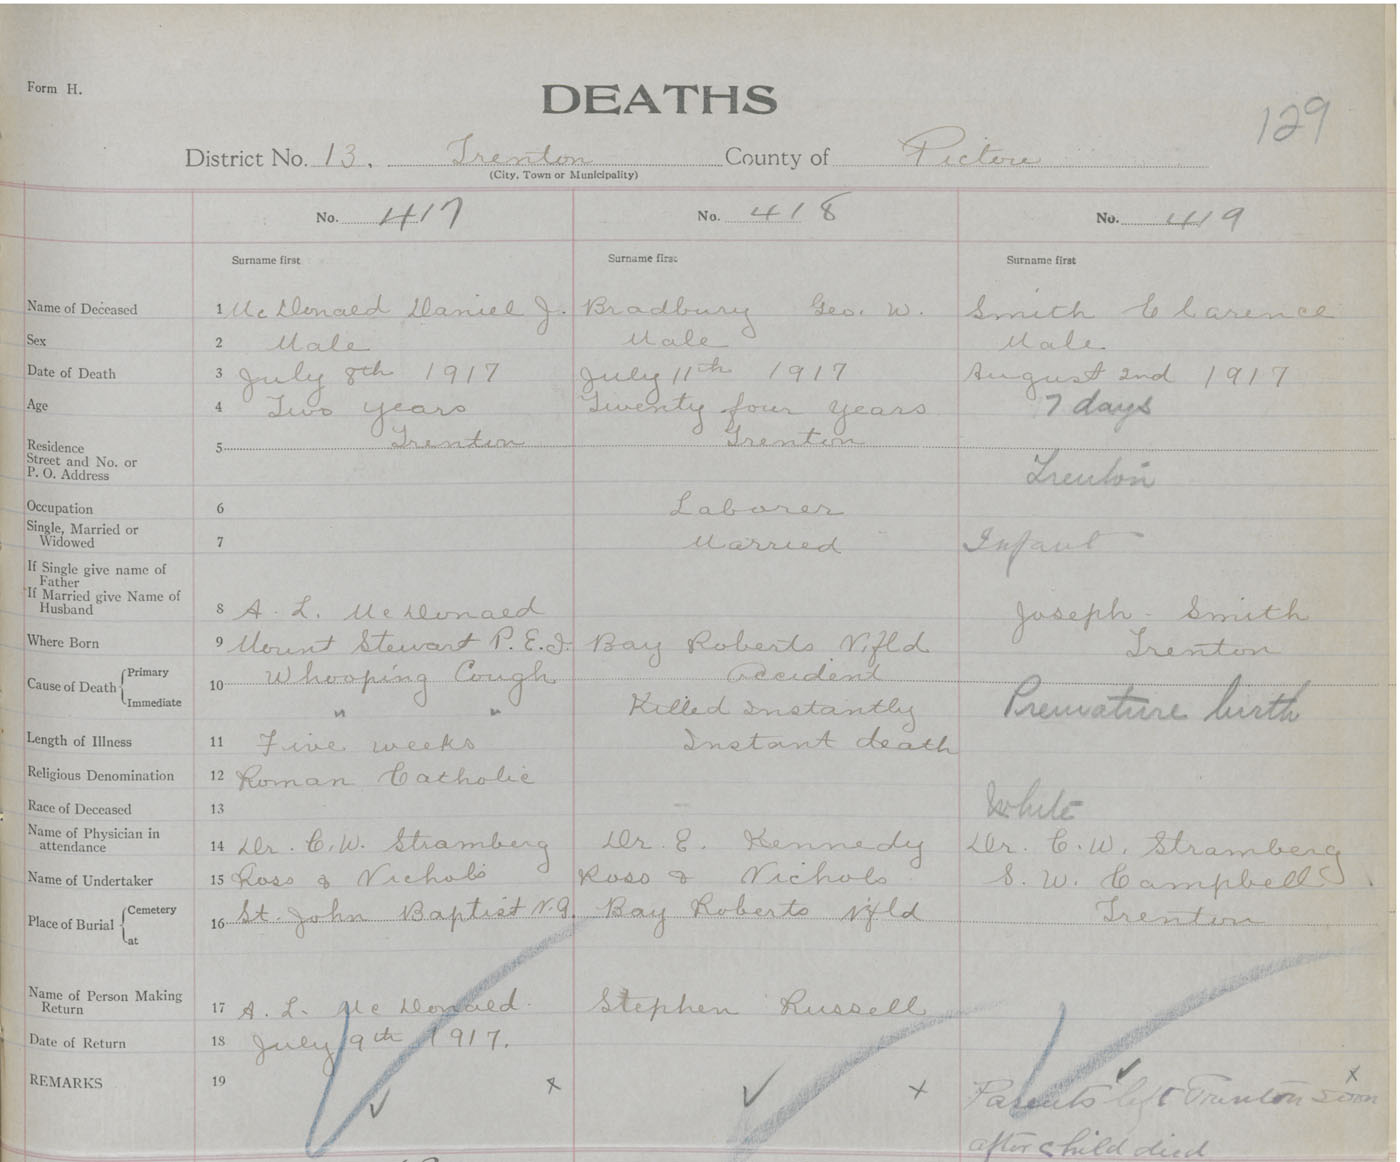 Form H.
DEATHS
129
District No. 13. Trenton County of Pictou
(City, Town or Municipality)
No. 417 No. 418 No. 419
Surname first Surname first Surname first
Name of Deceased 1 McDonald Daniel J. Bradbury Geo. W. Smith Clarence
Sex 2 Male Male Male
Date of Death 3 July 8th 1917 July 11th 1917 August 2nd 1917
Age 4 Two years Twenty four years 7 days
Residence 5 Trenton Trenton
Street and No. or
P. O. Address Trenton
Occupation 6 Laborer
Single, Married or
Widowed 7 Married Infant
If Single give name of
Father
If Married give Name of
Husband 8 A. L. McDonald Joseph Smith
Where Born 9 Mount Stewart P.E.I. Bay Roberts Nfld Trenton
Cause of Death Primary 10 Whooping Cough Accident
Immediate " " Killed Instantly Premature birth
Length of Illness 11 Five weeks Instant death
Religious Denomination 12 Roman Catholic
Race of Deceased 13 — White
Name of Physician in
attendance 14 Dr. C. W. Stramberg Dr. E. Kennedy Dr. C. W. Stramberg
Name of Undertaker 15 Ross & Nichols Ross & Nichols S. W. Campbell.
Place of Burial Cemetery 16 St. John Baptist N.G. Bay Roberts Nfld Trenton
at
Name of Person Making
Return 17 A. L. McDonald Stephen Russell
Date of Return 18 July 9th 1917.
REMARKS 19 x x x
Parents left Trenton soon
after child died